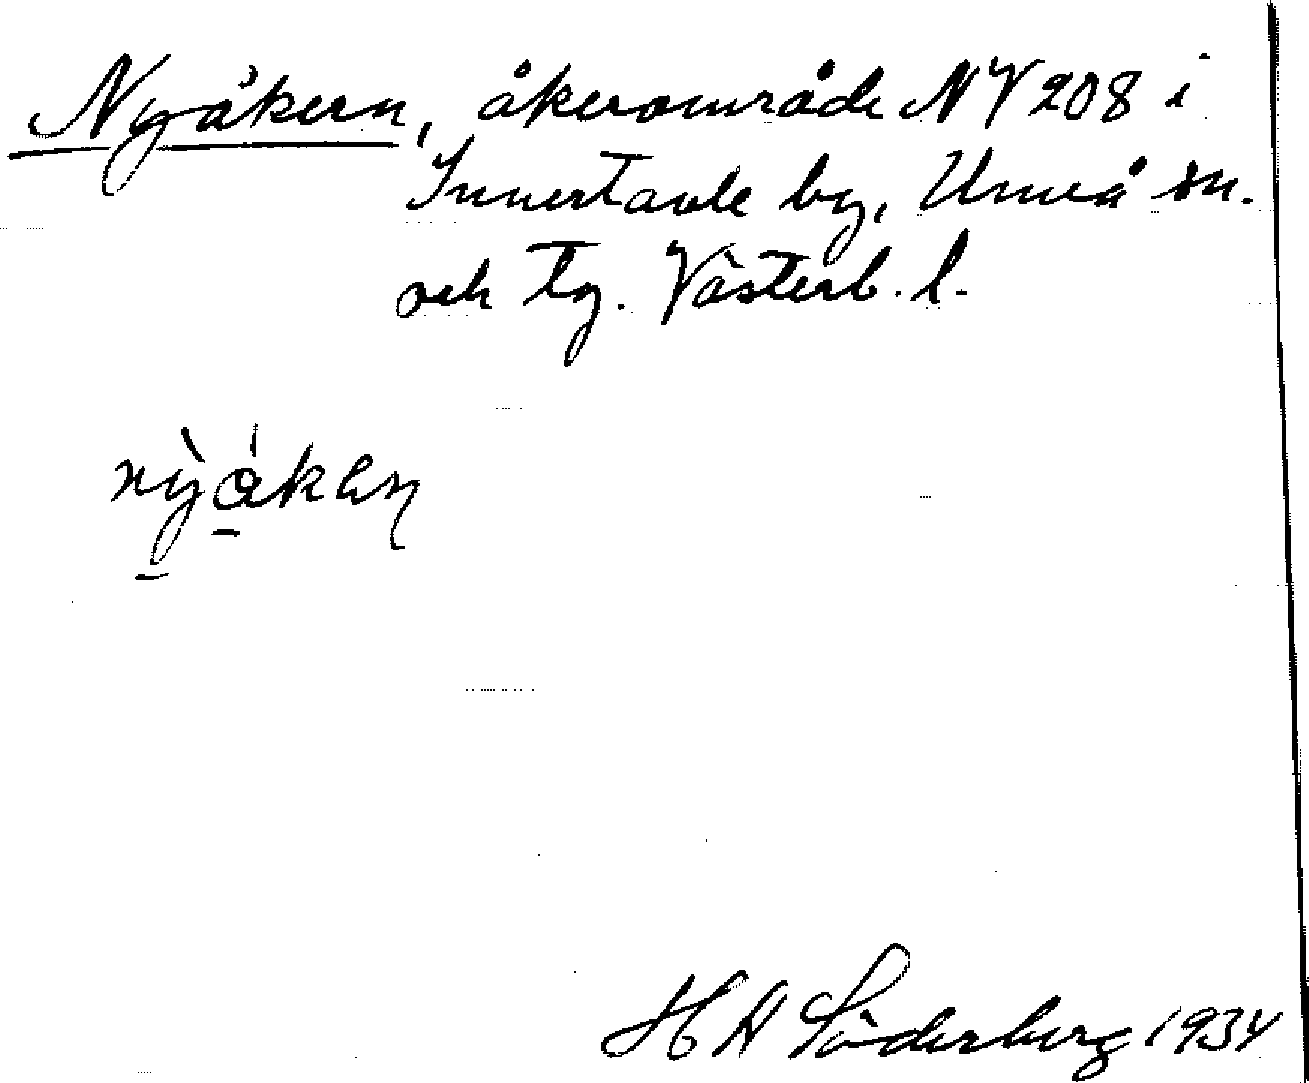 Nyåkern, åkerområde NV 208 i
Innertavle by, Umeå sn.
och tg. Västerb. l.
H A Söderberg 1934